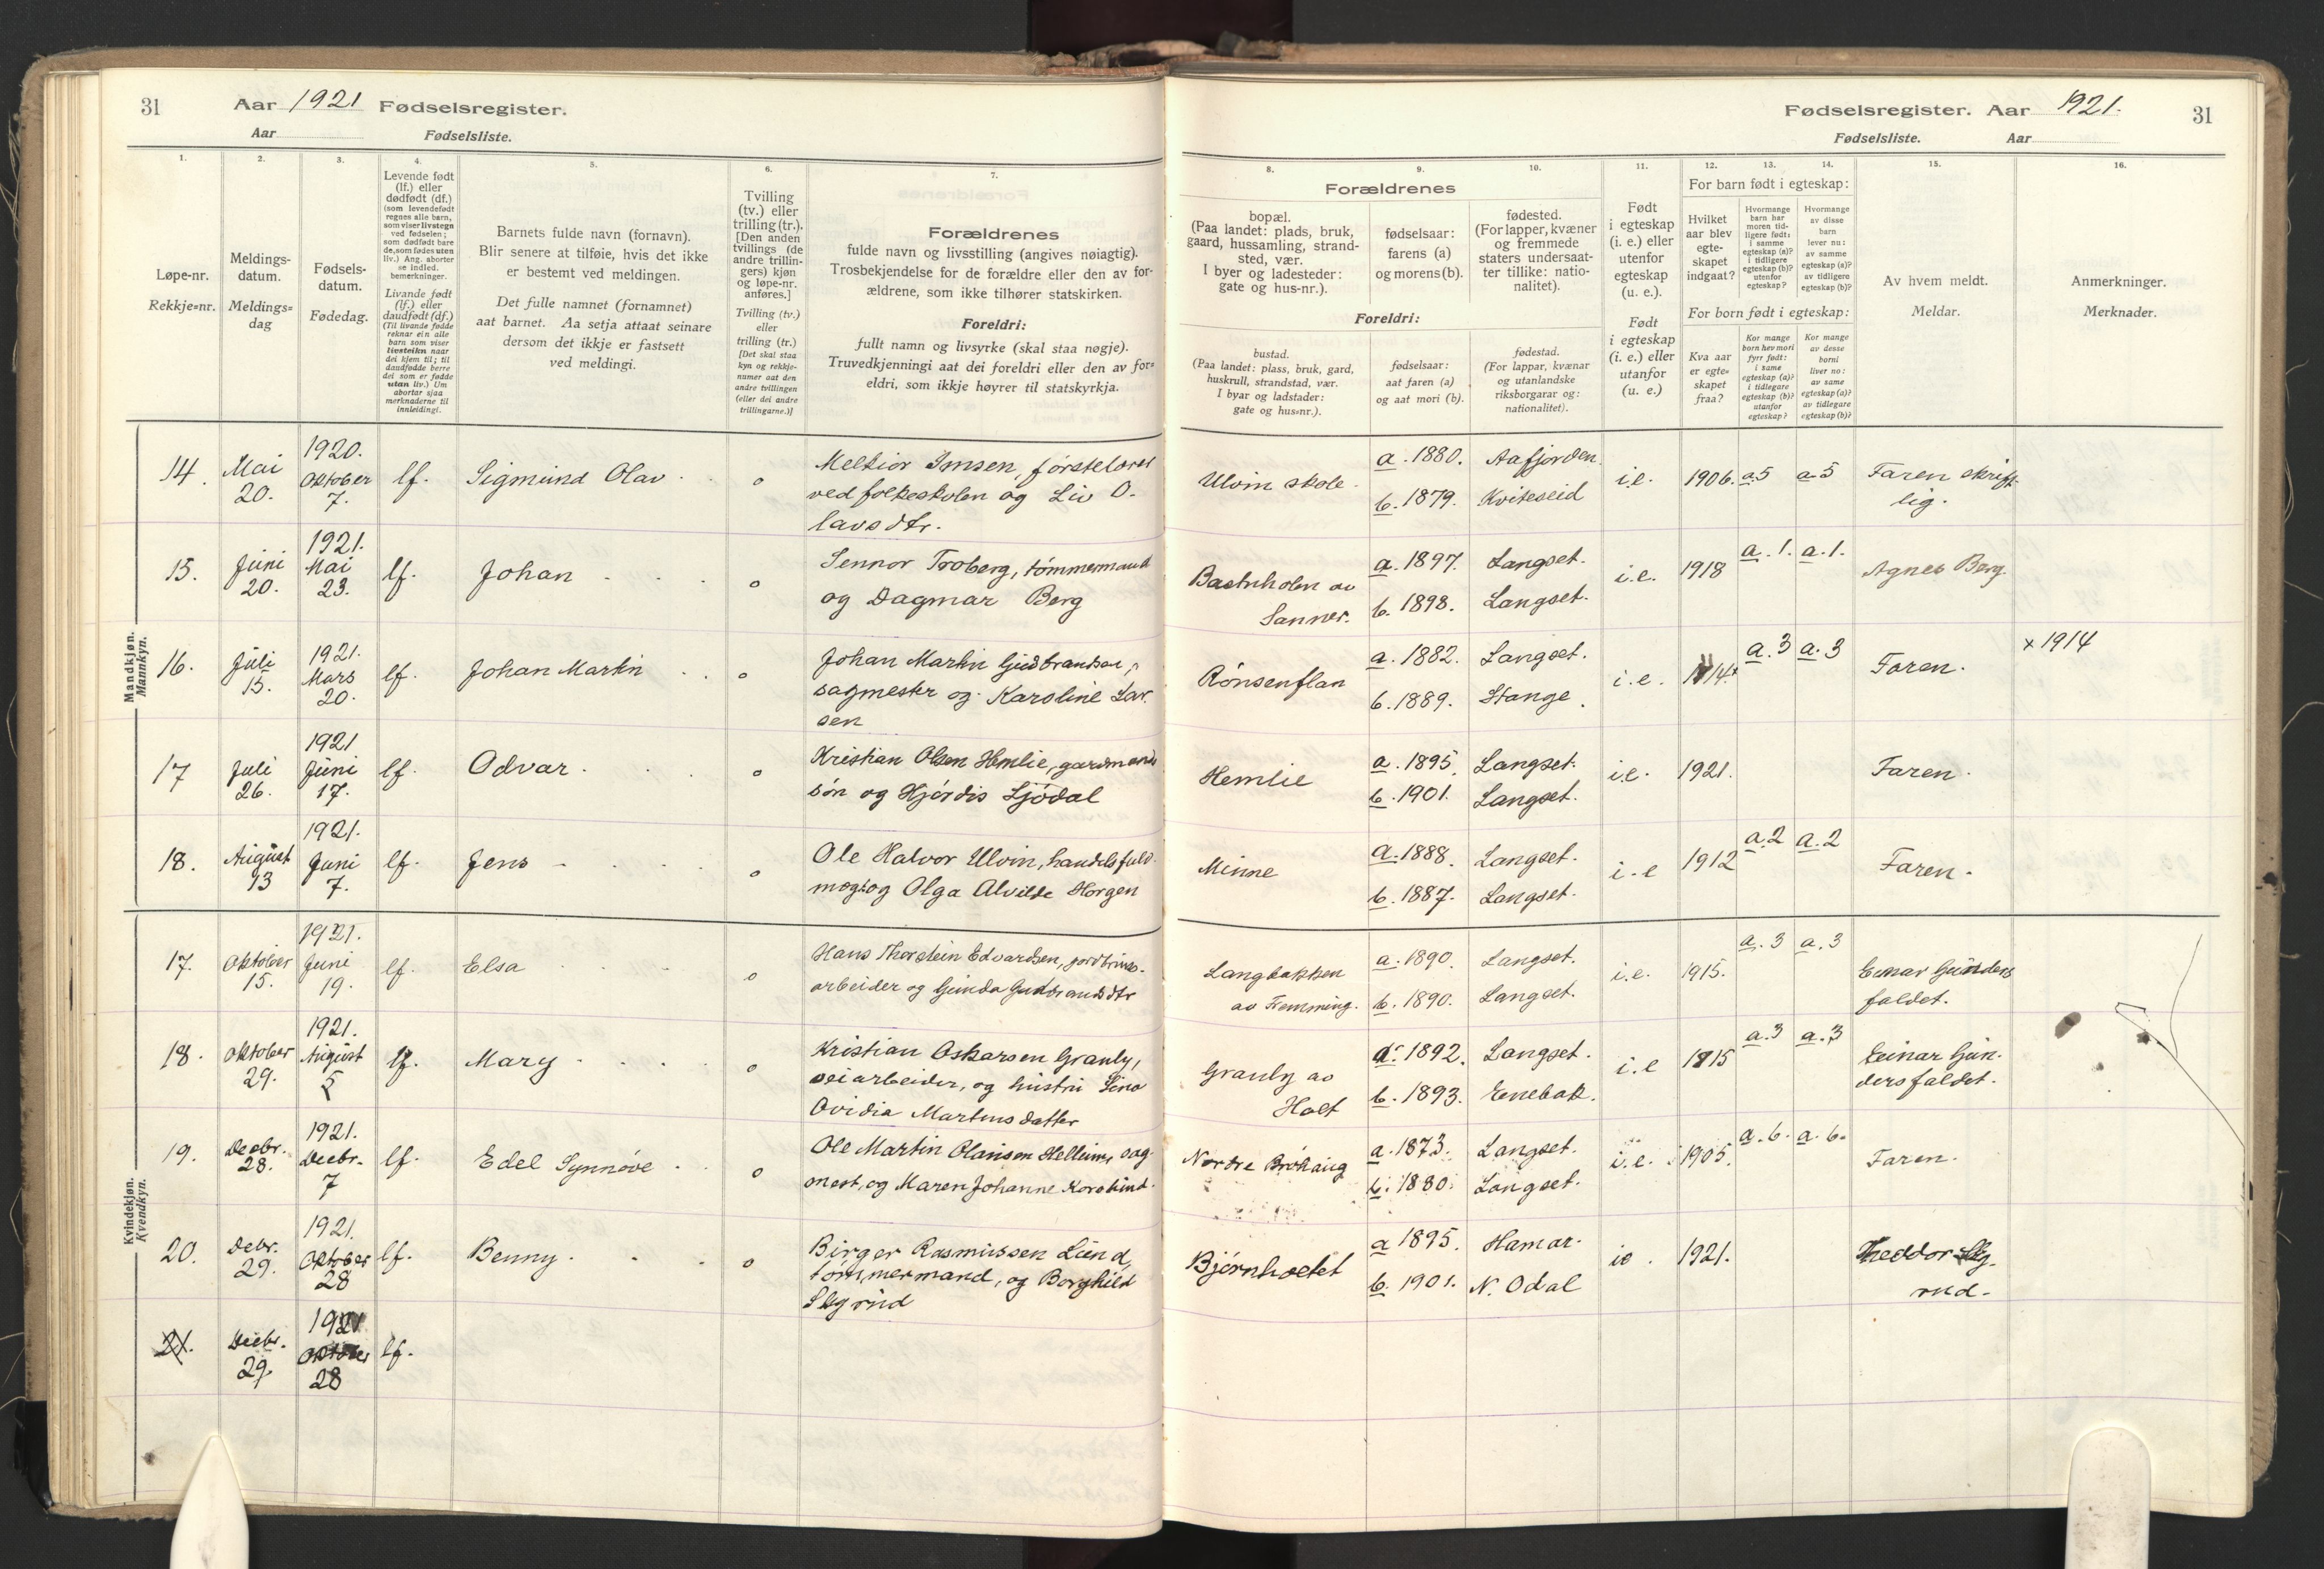 31 Aar 1921 Fødselsregister.
Aar Fødselsliste.
1. 2. 3. 4. 5. 6. 7.
Løpe-nr.
Rekkje=nr.
Meldings-
datum.
Meldings=
dag
Fødsels-
datum.
Fødedag.
Levende født
(lf.) eller
dødfødt (df.)
(som levendefødt
regnes alle barn,
som viser livstegn
ved fødselen;
som dødfødt bare
de, som fødes uten
liv.) Ang. aborter
se indled.
bemerkninger.
Livande født
(lf.) eller
daudfødt (df.)
(Til livande fødde
reknar ein alle
barn som viser
livsteikn naar
dei kjem til; til
daudfødde berre
dei som er fødde
utan liv.) Um
abortar sjaa
merknaderne til
innleidingi.
Barnets fulde navn (fornavn).
Blir senere at tilføie, hvis det ikke
er bestemt ved meldingen.
Det fulle namnet (fornamnet)
aat barnet. Aa setja attaat seinare
dersom det ikkje er fastsett
ved meldingi.
Tvilling
(tv.) eller
trilling (tr.).
[Den anden
tvillings (de
andre trillin-
gers) kjøn
og løpe-nr.
anføres.]
Tvilling (tv.)
eller
trilling (tr.)
[Det skal staa
kyn og rekkje-
numer aat den
andre tvillingen
(eller dei andre
trillingarne.)]
Forældrenes
fulde navn og livsstilling (angives nøiagtig).
Trosbekjendelse for de forældre eller den av for-
ældrene, som ikke tilhører statskirken.
Foreldri:
fullt namn og livsyrke (skal staa nøgje).
Truvedkjenningi aat dei foreldri eller den av for=
eldri, som ikkje høyrer til statskyrkja.
Mandkjøn.
Mannkyn.
14. Mai 20. 1920. Oktober 7. lf. Sigmund Olav o
Melkior Imsen, førstelærer
ved folkeskolen og Liv O-
lavsdtr.
15. Juni 20. 1921. Mai 23. lf. Johan o
Sennor Troberg, tømmermand
og Dagmar Berg
16. Juli 15. 1921. Mars 20. lf. Johan Martin o
Johan Martin Gudbrandsen,
sagmester og Karoline Lar-
sen
17 Juli 26. 1921 Juni 17. lf. Odvar o
Kristian Olsen Hemlie, gardmands
søn og Hjørdis Ljødal
18. August 13 1921. Juni 7. lf. Jens o
Ole Halvor Ulvin, handelsfuld-
mægt. og Olga Alvilde Horgen
Kvindekjøn.
Kvendkyn.
17. Oktober 15. 1921. Juni 19. lf. Elsa o
Hans Thorstein Edvardsen, jordbruks-
arbeider og Gunda Gudbrandsdtr
18. Oktober 29. 1921. August 5 lf. Mary o
Kristian Oskarsen Granly,
veiarbeider, og hustru Lina
Ovidia Martinsdatter
19. Decbr. 28. 1921. Decbr. 7 lf. Edel Synnøve o
Ole Martin Olausen Hellium, sag-
mest, og Maren Johanne Korslund
20. Debr. 29. 1921. Oktober 28 lf. Benny o
Birger Rasmussen Lund,
tømmermand, og Borghild
21. Decbr. 29. 1921 Oktober 28 lf.
Fødselsregister. Aar 1921. 31
Fødselsliste. Aar
8. 9. 10. 11. 12. 13. 14. 15. 16.
Forældrenes
bopæl.
(Paa landet: plads, bruk,
gaard, hussamling, strand-
sted, vær.
I byer og ladesteder:
gate og hus-nr.).
fødselsaar:
farens (a)
og morens (b).
fødested.
(For lapper, kvæner
og fremmede
staters undersaat-
ter tillike: natio-
nalitet).
Foreldri:
bustad.
(Paa landet: plass, bruk, gard,
huskrull, strandstad, vær.
I byar og ladstader:
gate og hus=nr.).
fødselsaar:
aat faren (a)
og aat mori (b).
fødestad.
(For lappar, kvænar
og utanlandske
riksborgarar og:
nationalitet).
Født
i egteskap
(i. e.) eller
utenfor
egteskap
(u. e.).
Født
i egteskap
(i. e.) eller
utanfor
(u. e.)
For barn født i egteskap:
Hvilket
aar blev
egte-
skapet
indgaat?
Hvormange
barn har
moren tid-
ligere født:
i samme
egteskap (a)?
i tidligere
egteskap (b)?
utenfor
egteskap?
Hvormange
av disse
barn
lever nu:
av samme
egteskap (a)?
av tidligere
egteskap (b)?
For born født i egteskap:
Kva aar
er egte=
skapet
fraa?
Kor mange
born hev mori
fyrr født:
i same
egteskap (a)?
i tidlegare
egteskap (b)?
utanfor
egteskap?
Kor mange
av desse
borni
liver no:
av same
egteskap (a)?
av tidlegare
egteskap (b)?
Av hvem meldt.
Meldar.
Anmerkninger.
Merknader.
Ulvin skole. a. 1880. Aafjorden. i.e. 1906. a.5 a.5 Faren skrift-
b. 1879. Kviteseid lig.
a. 1897. Langset. i.e. 1918 a. 1. a. 1. Agnes Berg.
Sanner. b. 1898. Langset.
Rønsenflan a. 1882. Langset. i.e. 1914+ a. 3 a. 3 Faren. x 1914
b. 1889. Stange.
Hemlie a. 1895. Langset. i.e. 1921. Faren.
b. 1901. Langset.
Minne a. 1888. Langset. i.e 1912 a.2 a.2 Faren.
b. 1887. Langset.
Langbakken a. 1890. Langset. i.e. 1915. a. 3 a. 3 Einar Gunders
av Fremming. b. 1890. Langset. faldet.
Granly av a. 1892. Langset. i.e 1915 a.3 a.3 Einar Gun-
Holt b. 1893. Enebak. dersfaldet.
Nordre Brøhaug a. 1873. Langset. i.e. 1905. a. 6. a. 6. Faren.
b. 1880. Langset.
a 1895. Hamar. ie. 1921.
b. 1901. N. Odal rud.